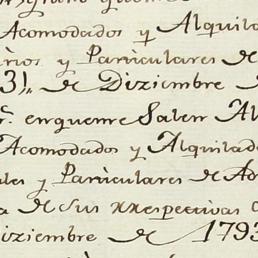 Acomodados y Alquila
rios y Parriculares de
31,, de Diziembre
enquenre Salen Al
Acomodados y Alquilad
les y Parriculares de Ad
a de sus rrespectivas
iziembre de 1793